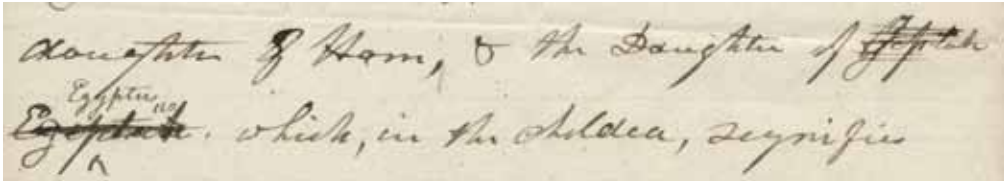 daughter of Ham, & the Daughter of Zeptah
Egyptus
Egyptah. which, in the Chaldea, signifies